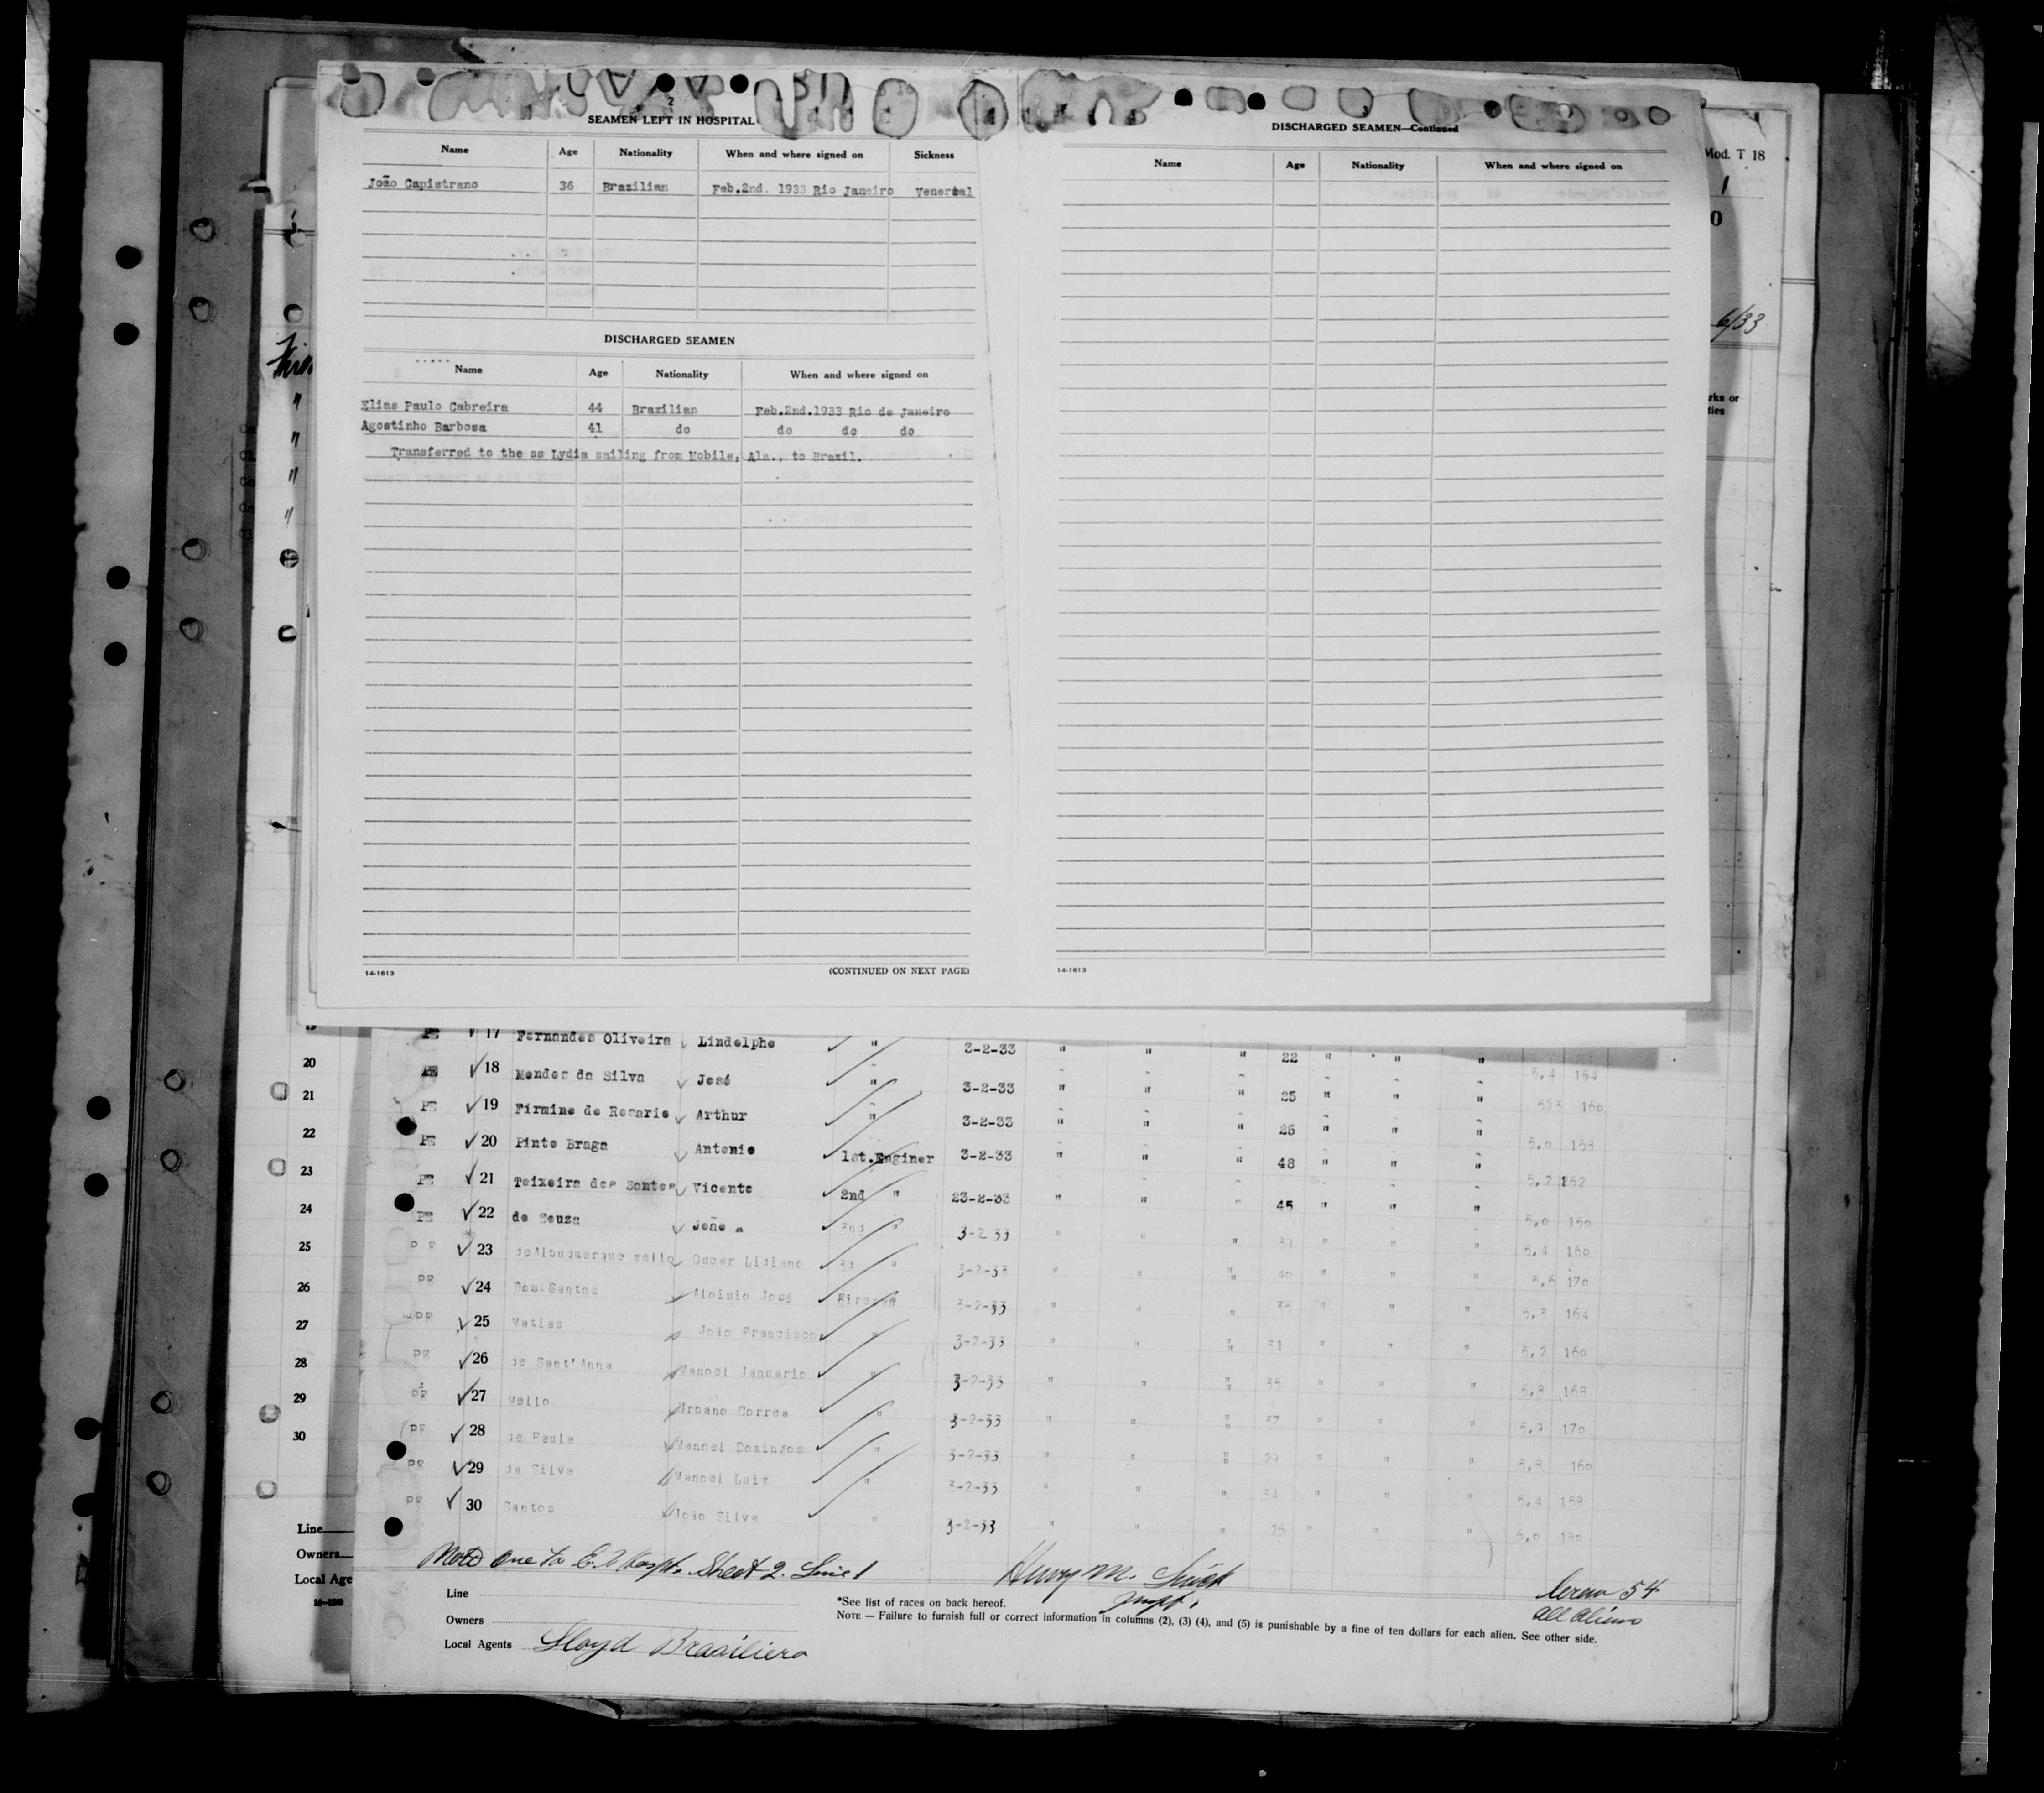 2
SEAMEN LEFT IN HOSPITAL
Name Age Nationality When and where signed on Sickness
João Capistrano 36 Brazilian Feb.2nd. 1933 Rio Janeiro Venereal
DISCHARGED SEAMEN
Name Age Nationality When and where signed on
Elias Paulo Cabreira 44 Brazilian Feb.2nd.1933 Rio de Janeiro
Agostinho Barbosa 41 do do do do
Transferred to the ss Lydia sailing from Mobile, Ala., to Brazil.
14-1613 (CONTINUED ON NEXT PAGE)
3
DISCHARGED SEAMEN—Continued
Name Age Nationality When and where signed on
14-1613
Mod. T 18
1
0
6/33
rks or
ties
19
20
21
22
23
24
25
26
27
28
29
30
Line
Owners
Local Age
PE 17 Fernandes Oliveira Lindolpho " 3-2-33 " " " 22 " " " 5,4 154
PE 18 Mendes da Silva José " 3-2-33 " " " 25 " " " 160
PE 19 Firmino do Rosario Arthur " 3-2-33 " " " 25 " " " 5,0 158
PE 20 Pinto Braga Antonio 1st.Enginer 3-2-33 " " " 48 " " " 5,2 152
PE 21 Teixeira dos Santos Vicente 2nd " 23-2-33 " " " 45 " " " 5,0 150
PE 22 de Souza João 2nd " 3-2 33 " " " 29 " " " 5,4 160
PE 23 deAlbuquerque mello Oscar Lidiano 3d " 3-2-33 " " " 40 " " " 5,6 170
PE 24 Dos Santos Aloisio José Fireman 3-2-33 " " " 38 " " " 5,3 164
PE 25 Matias João Francisco " 3-2-33 " " " 31 " " " 5,2 160
PE 26 de Sant'Anna Manoel Januario " 3-2-33 " " " 35 " " " 5,8 168
PE 27 Mello Urbano Correa " 3-2-33 " " " 27 " " " 5,9 170
PE 28 de Paula Manoel Domingos " 3-2-33 " " " 29 " " " 5,8 160
PE 29 da Silva Manoel Luiz " 3-2-33 " " " 34 " " " 5,4 158
PE 30 Santos João Silva " 3-2-33 " " " 26 " " " 6,0 180
Note One to E. I. Hospt. Sheet 2. Line 1
Henry M.
Inspt.
Crew 54
all aliens
Line
Owners
Local Agents Lloyd Brasiliero
*See list of races on back hereof.
NOTE — Failure to furnish full or correct information in columns (2), (3) (4), and (5) is punishable by a fine of ten dollars for each alien. See other side.